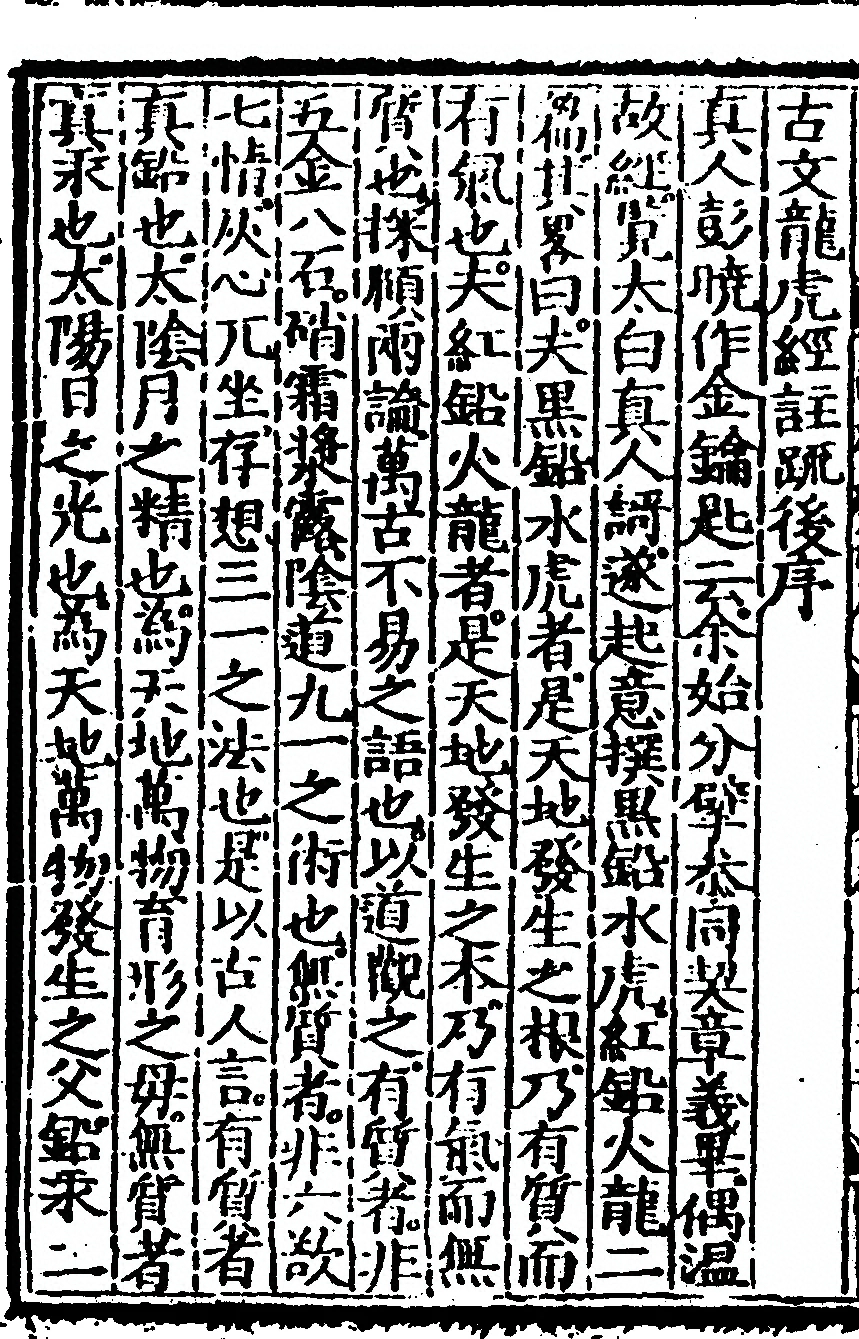 古文龍虎經註疏後序
真人彭曉作金鑰匙云余始分擘叅同契章義畢偶溫
故經覽太白真人謌遂起意撰黑鉛水虎紅鉛火龍二
其畧曰夫黑鉛水虎者是天地發生之根乃有質而
有氣也夫紅鉛火龍者是天地發生之本乃有氣而無
質也探賾兩論萬古不易之語也以道觀之有質者非
五金八石硝霜漿露陰道九一之術也無質者非六欲
七情灰心兀坐存想三一之法也是以古人言有質者
真鉛也太陰月之精也為天地萬物育形之母無質者
真汞也太陽日之光也為天地萬物發生之父鉛汞二